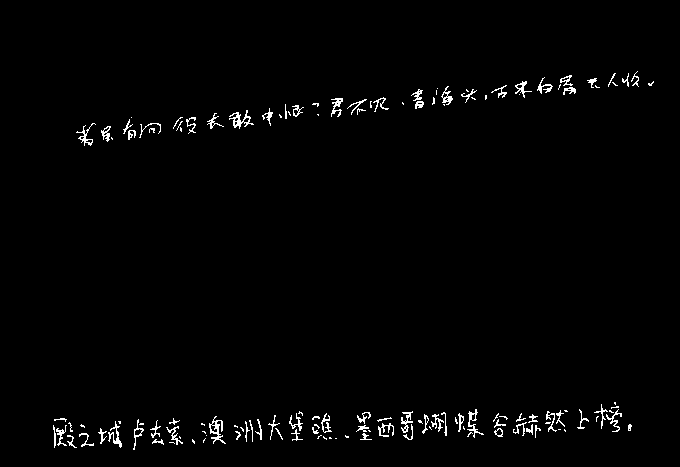 者虽有问役夫敢申恨？君不见、青海头，古来白骨无人收。
殿之城卢克索、澳洲大堡礁、墨西哥蝴蝶谷赫然上榜。